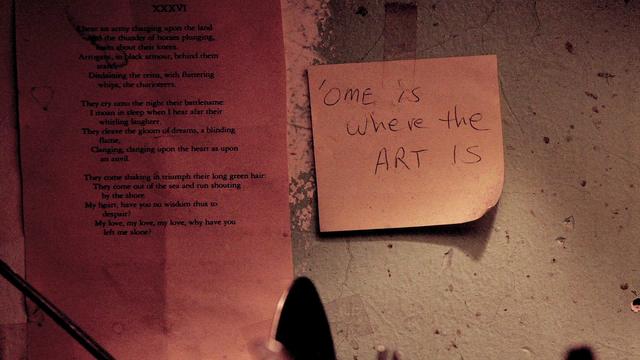 XXXVI
I hear an army charging upon the land
And the thunder of horses plunging,
foam about their knees.
Arrogant, in black armour, behind them
stand,
Disdaining the reins, with fluttering
whips, the charioteers.
They cry unto the night their battlename:
I moan in sleep when I hear afar their
whirling laughter.
They cleave the gloom of dreams, a blinding
flame,
Clanging, clanging upon the heart as upon
an anvil.
They come shaking in triumph their long green hair:
They come out of the sea and run shouting
by the shore.
My heart, have you no wisdom thus to
despair?
My love, my love, my love, why have you
left me alone?
'OME is
where the
ART IS